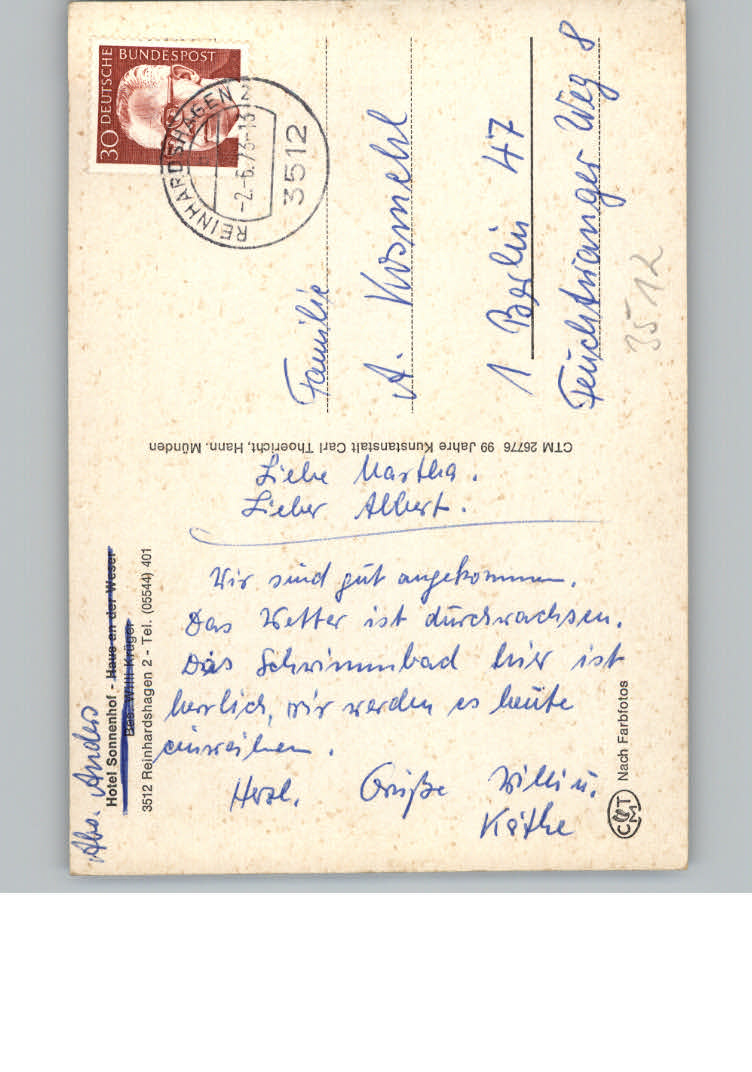 30 DEUTSCHE BUNDESPOST
REINHARDSHAGEN 2
-2.-6.73-13
3512
Familie
A. Kosmehl
1 Berlin 47
Feuchtwanger Weg 8
3512
CTM 26776 99 Jahre Kunstanstalt Carl Thoericht, Hann. Münden
Liebe Martha.
Lieber Albert.
Wir sind gut angekommen.
Das Wetter ist durchwachsen.
Das Schwimmbad hier ist
herrlich, wir werden es heute
einweihen.
Herzl. Grüße Willi u.
Käthe
Abs. Anders
Hotel Sonnenhof - Haus an der Weser
Bes. Willi Krüger
3512 Reinhardshagen 2 - Tel. (05544) 401
CTM
Nach Farbfotos